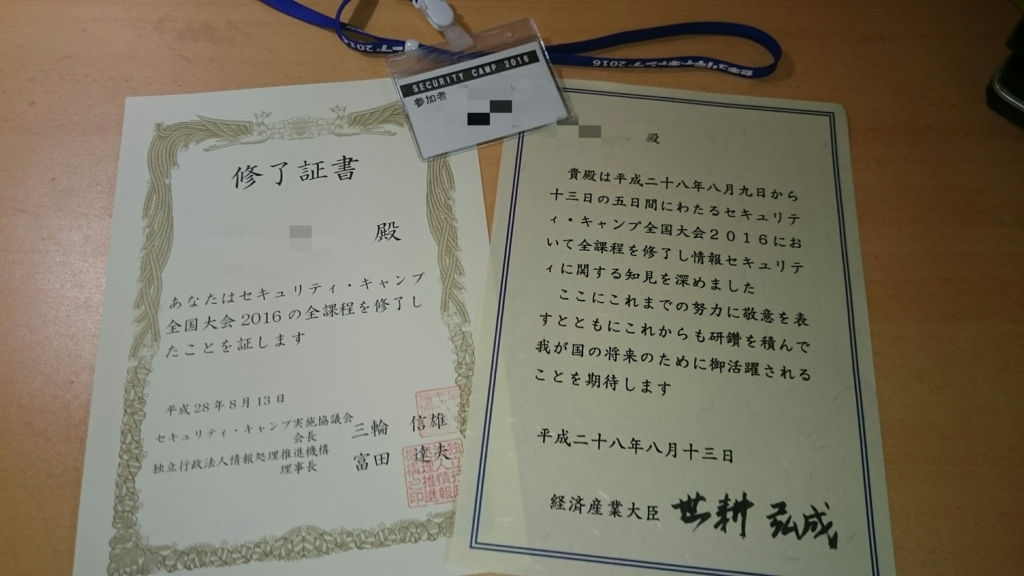 セキュリティ・キャンプ 2016
SECURITY CAMP 2016
参加者
修了証書
殿
あなたはセキュリティ・キャンプ
全国大会2016の全課程を修了し
たことを証します
平成28年8月13日
セキュリティ・キャンプ実施協議会
会長 三輪 信雄
独立行政法人情報処理推進機構
理事長 富田 達夫
殿
貴殿は平成二十八年八月九日から
十三日の五日間にわたるセキュリテ
ィ・キャンプ全国大会2016にお
いて全課程を修了し情報セキュリテ
ィに関する知見を深めました
ここにこれまでの努力に敬意を表
すとともにこれからも研鑽を積んで
我が国の将来のために御活躍される
ことを期待します
平成二十八年八月十三日
経済産業大臣 世耕 弘成